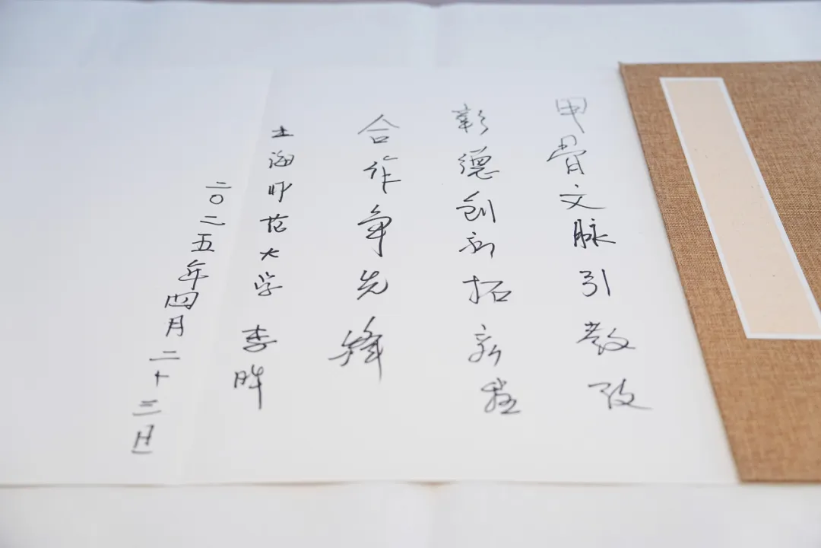 甲骨文脉引教改
彰德创新拓新程
合作争先锋
上海师范大学 李晔
二〇二五年四月二十三日